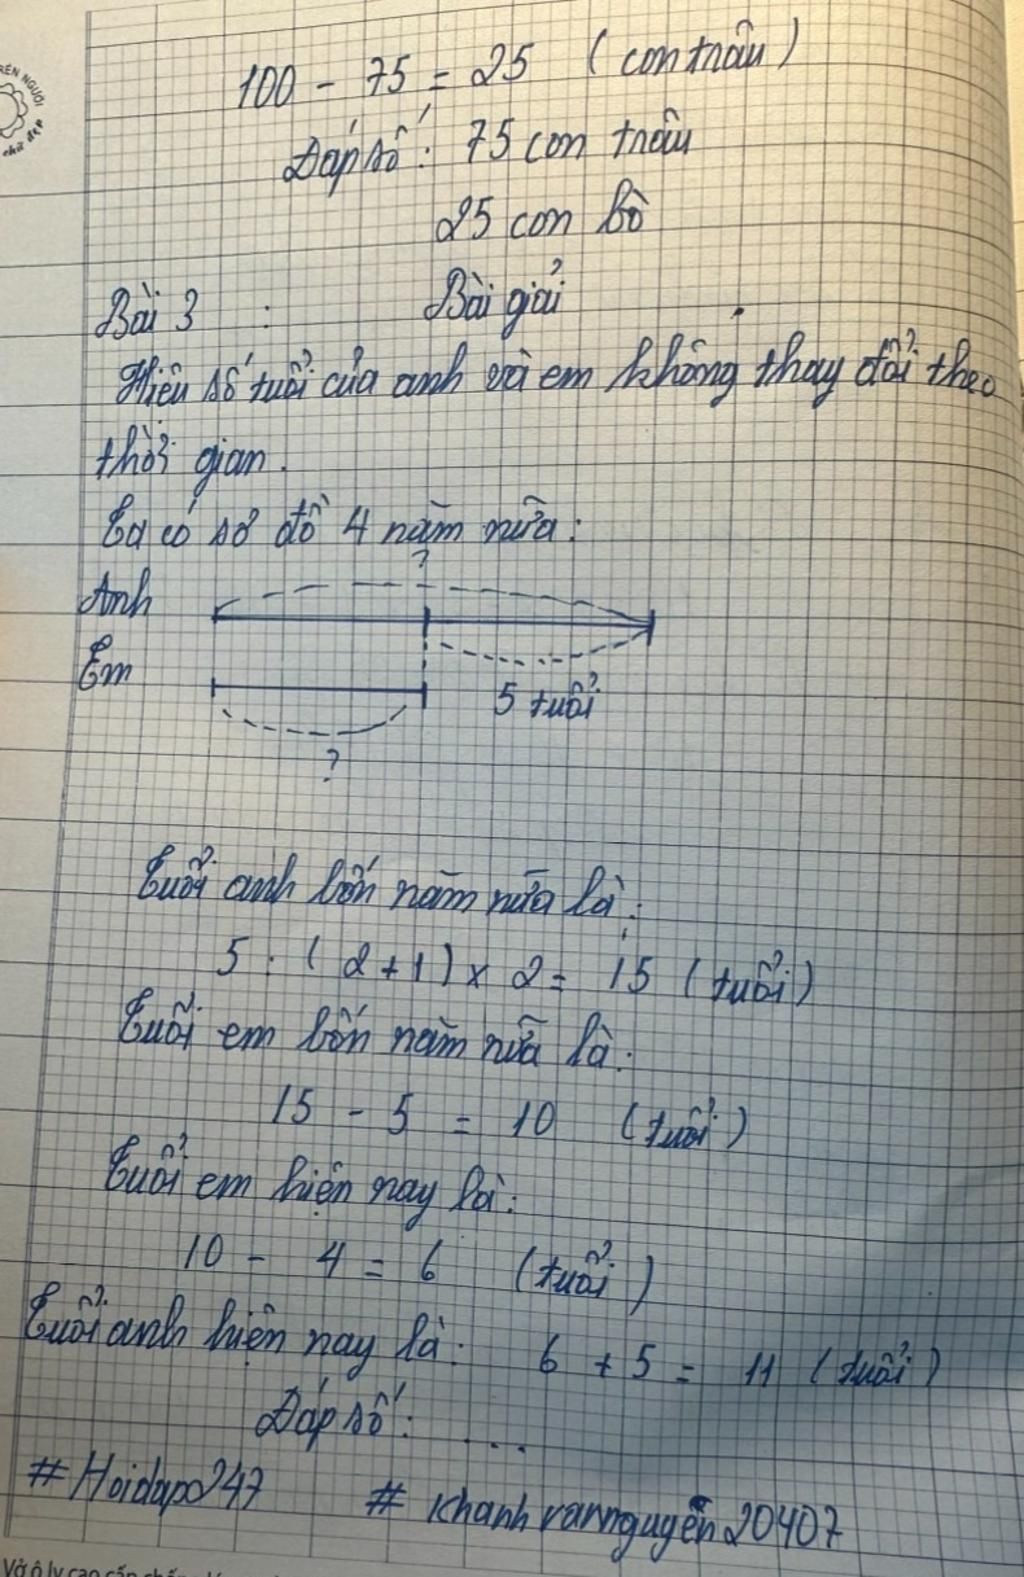 100 - 75 = 25 (con trâu)
Đáp số: 75 con trâu
25 con bò
Bài 3 : Bài giải
Hiệu số tuổi của anh và em không thay đổi theo
thời gian.
Ta có sơ đồ 4 năm nữa:
?
Anh
Em
5 tuổi
?
Tuổi anh bốn năm nữa là:
5 : (2+1) x 2 = 15 (tuổi)
Tuổi em bốn năm nữa là:
15 - 5 = 10 (tuổi)
Tuổi em hiện nay là:
10 - 4 = 6 (tuổi)
Tuổi anh hiện nay là: 6 + 5 = 11 (tuổi)
Đáp số: ....
#Hoidap247 # khanhvannguyễn20407
RÈN NGƯỜI
chữ đẹp
Vở ô ly cao cấp